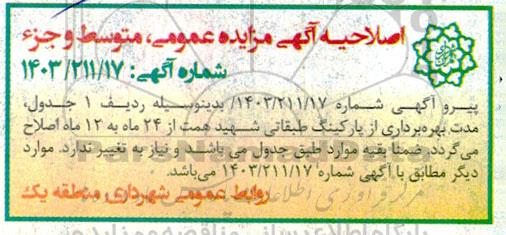 اصلاحیه آگهی مزایده عمومی، متوسط و جزء
شماره آگهی: ۱۴۰۳/۲۱۱/۱۷
پیرو آگهی شماره ۱۴۰۳/۲۱۱/۱۷/ بدینوسیله ردیف ۱ جدول،
مدت بهره‌برداری از پارکینگ طبقاتی شهید همت از ۲۴ ماه به ۱۲ ماه اصلاح
می‌گردد. ضمنا بقیه موارد طبق جدول می باشد و نیاز به تغییر ندارد. موارد
دیگر مطابق با آگهی شماره ۱۴۰۳/۲۱۱/۱۷ می‌باشد.
روابط عمومی شهرداری منطقه یک